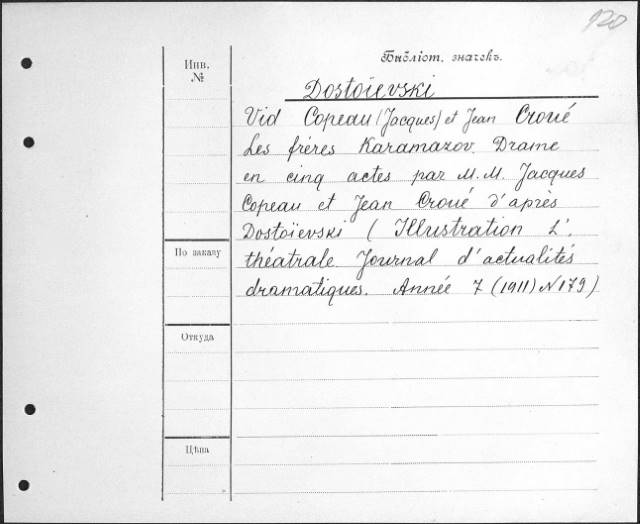 120
Библіот. значекъ.
Инв.
№
Dostoïevski
Vid Copeau (Jacques) et Jean Croué
Les frères Karamazov. Drame
en cinq actes par M. M. Jacques
Copeau et Jean Croué d'après
Dostoïevski ( Illustration L'.
По заказу
théatrale Journal d'actualités
dramatiques. Année 7 (1911) N 179)
Откуда
Цѣна